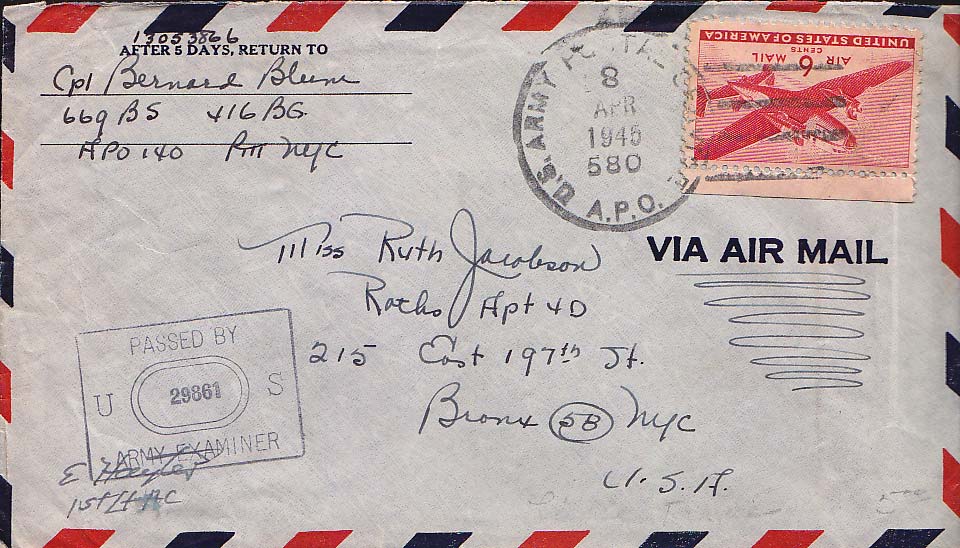 13053866
AFTER 5 DAYS, RETURN TO
Cpl Bernard Blum
669 BS 416 BG
APO 140 Pm NYC
U.S. ARMY POSTAL
8
APR
1945
580
A.P.O.
UNITED STATES OF AMERICA
6 CENTS
AIR MAIL
VIA AIR MAIL
Miss Ruth Jacobson
Apt 4D
215 East 197th St.
Bronx 58 NYC
U.S.A.
PASSED BY
U 29861 S
ARMY EXAMINER
E
1st Lt AC